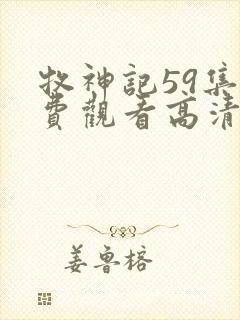 牧神記59集
費觀看高清
姜魯榕